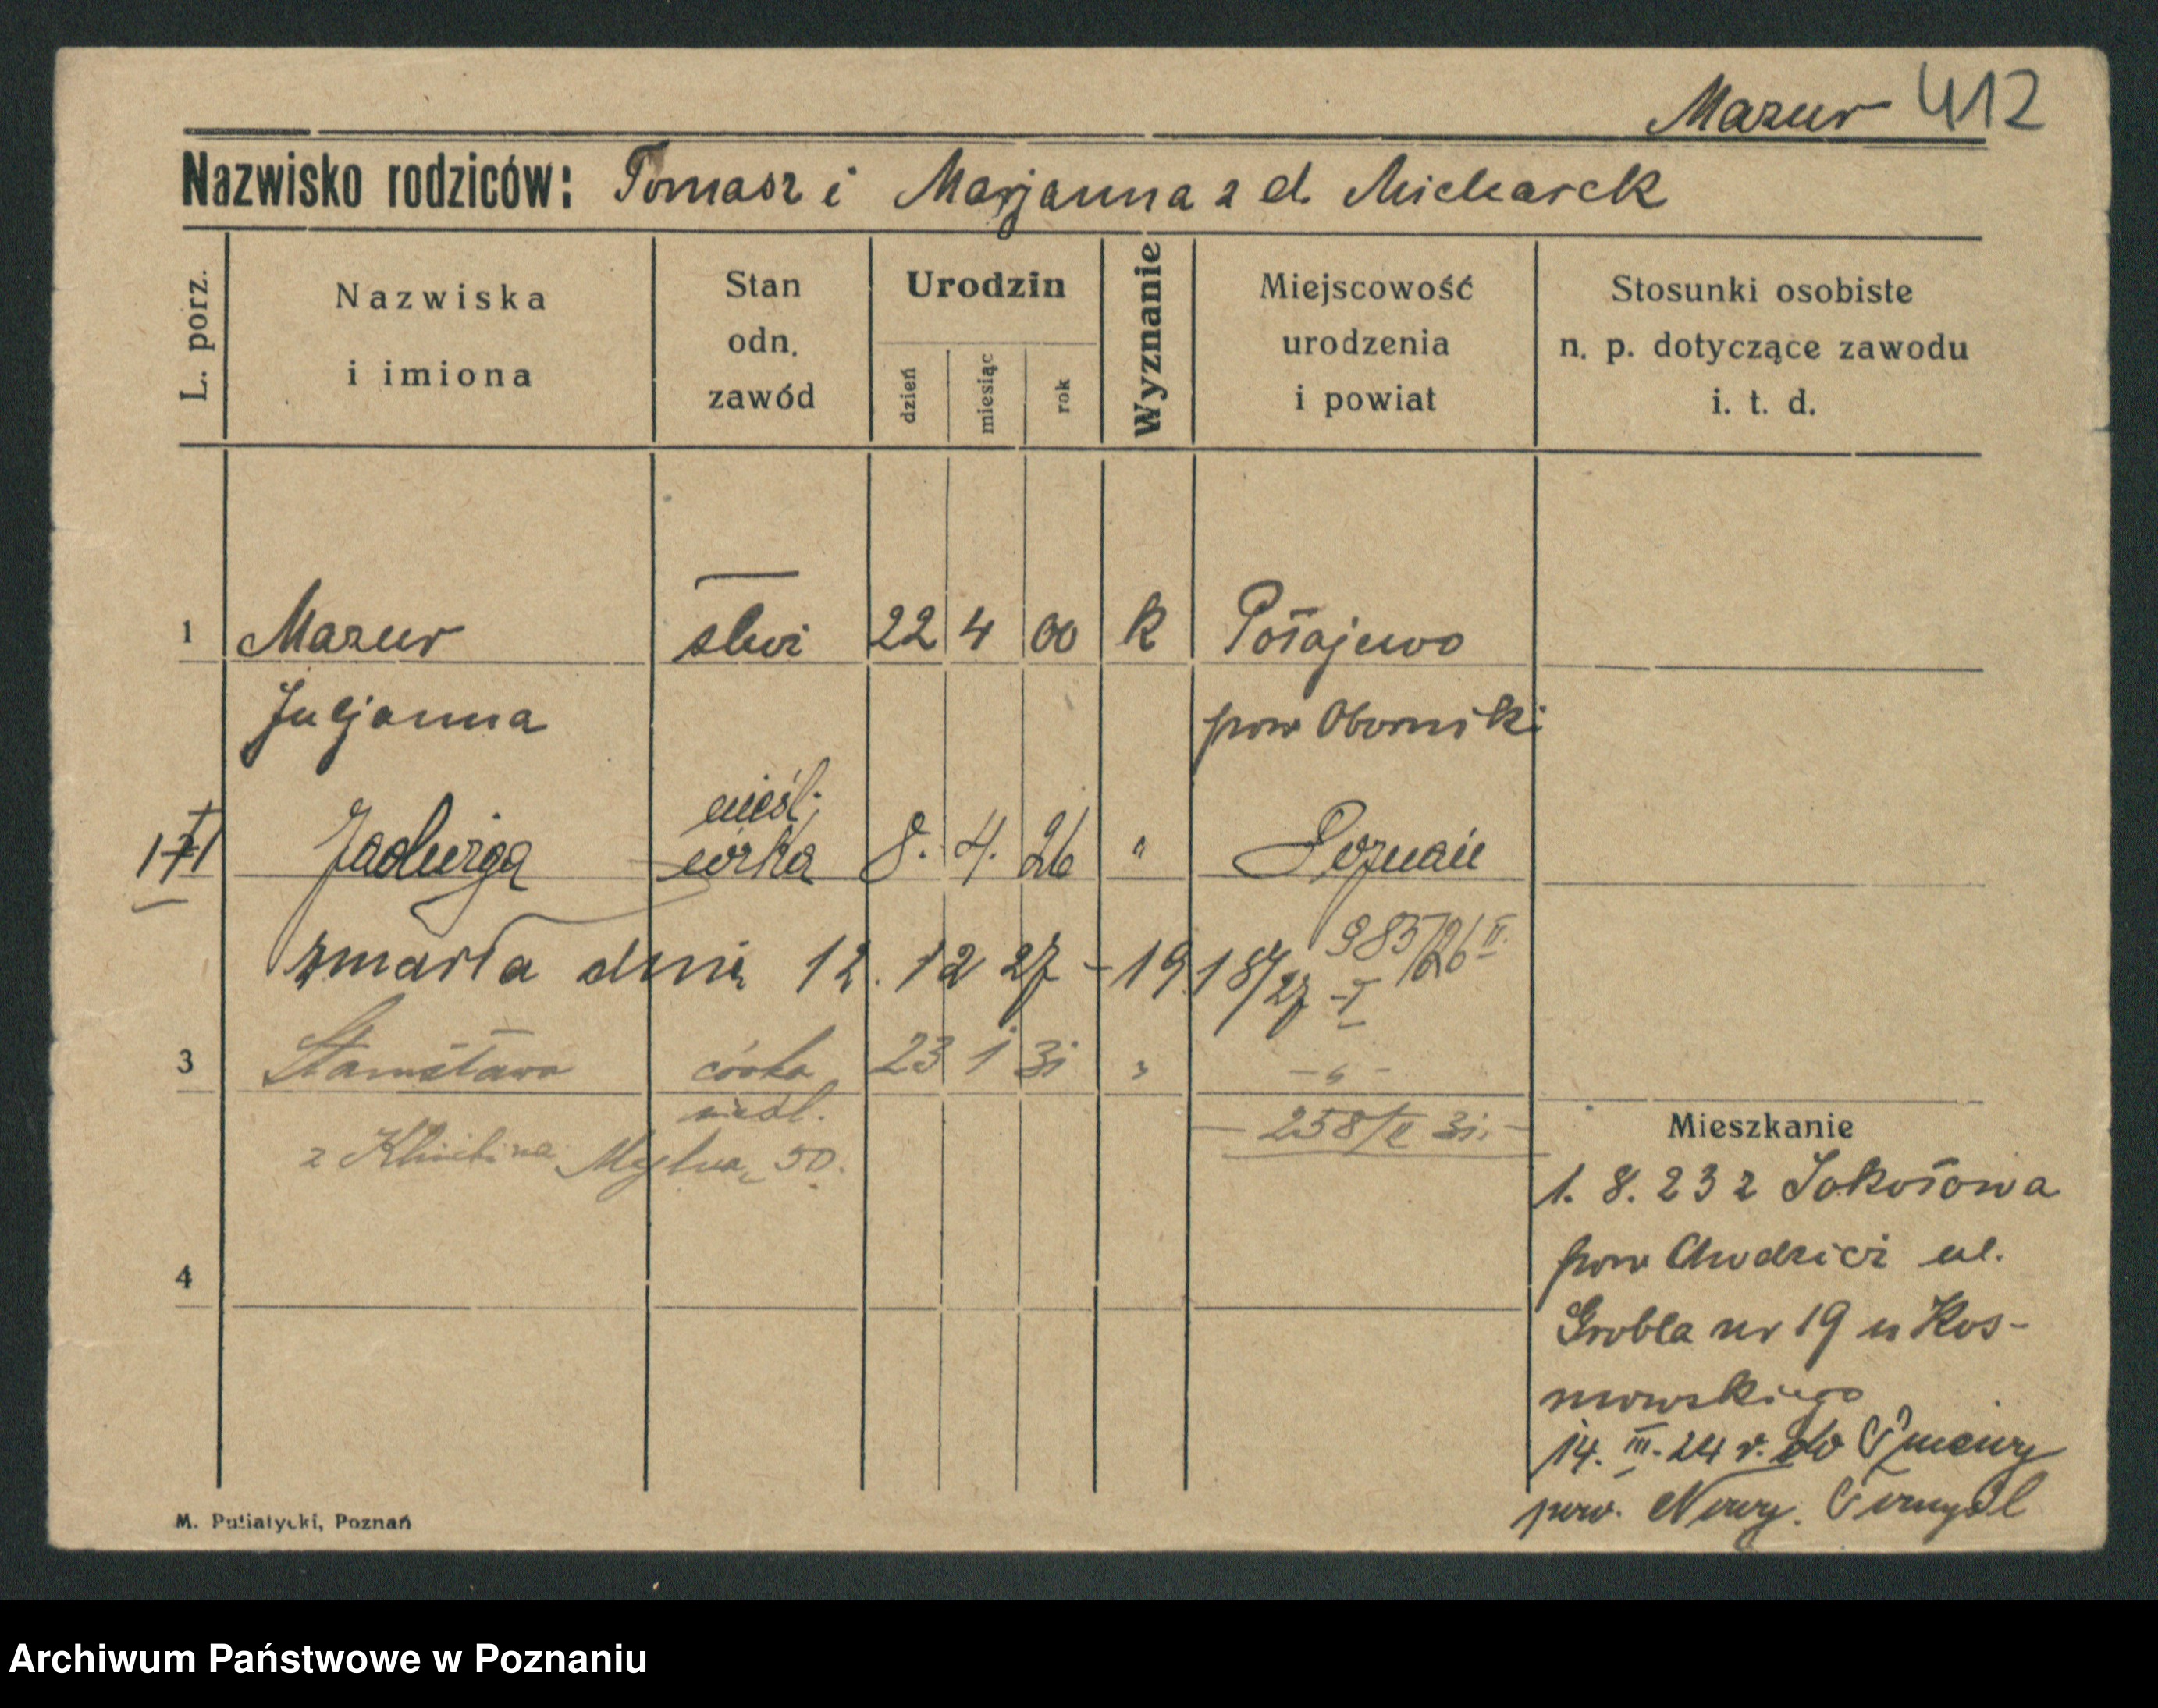 Mazur 412
Nazwisko rodziców: Tomasz i Marjanna z d. Micharck
L. porz.
Nazwiska
i imiona
Stan
odn.
zawód
Urodzin
dzień
miesiąc
rok
Wyznanie
Miejscowość
urodzenia
i powiat
Stosunki osobiste
n. p. dotyczące zawodu
i. t. d.
1 Mazur służ 22 4 00 k Połajewo
Juljanna pow Oborniki
nieśl.
Jadwiga córka 8. 4. 26 " Poznań
985/26 II.
zmarła dnia 12. 12 27 - 1918/27 - I
3 Stanisława córka 23 1 31 " - " -
nieśl. - 258/II 31. -
z Kliniki na Myśna 50.
4
Mieszkanie
1. 8. 23 z Sokołowa
pow Chodzież ul.
Grobla nr 19 u Kos-
mowskiego
14. III. 24 r. do
pow. Nowy. Tomyśl
M. Putiatycki, Poznań
Archiwum Państwowe w Poznaniu